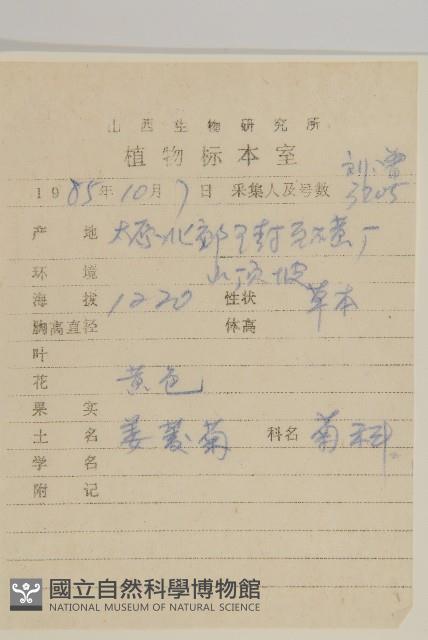 山西生物研究所
植物标本室
1985年10月7日 采集人及号数 刘 3205
产地 太原北郊王封 黄厂
环境 山顶坡
海拔 1220 性状 草本
胸高直径 体高
叶
花 黄色
果实
土名 菊 科名 菊科
学名
附记
國立自然科學博物館
NATIONAL MUSEUM OF NATURAL SCIENCE